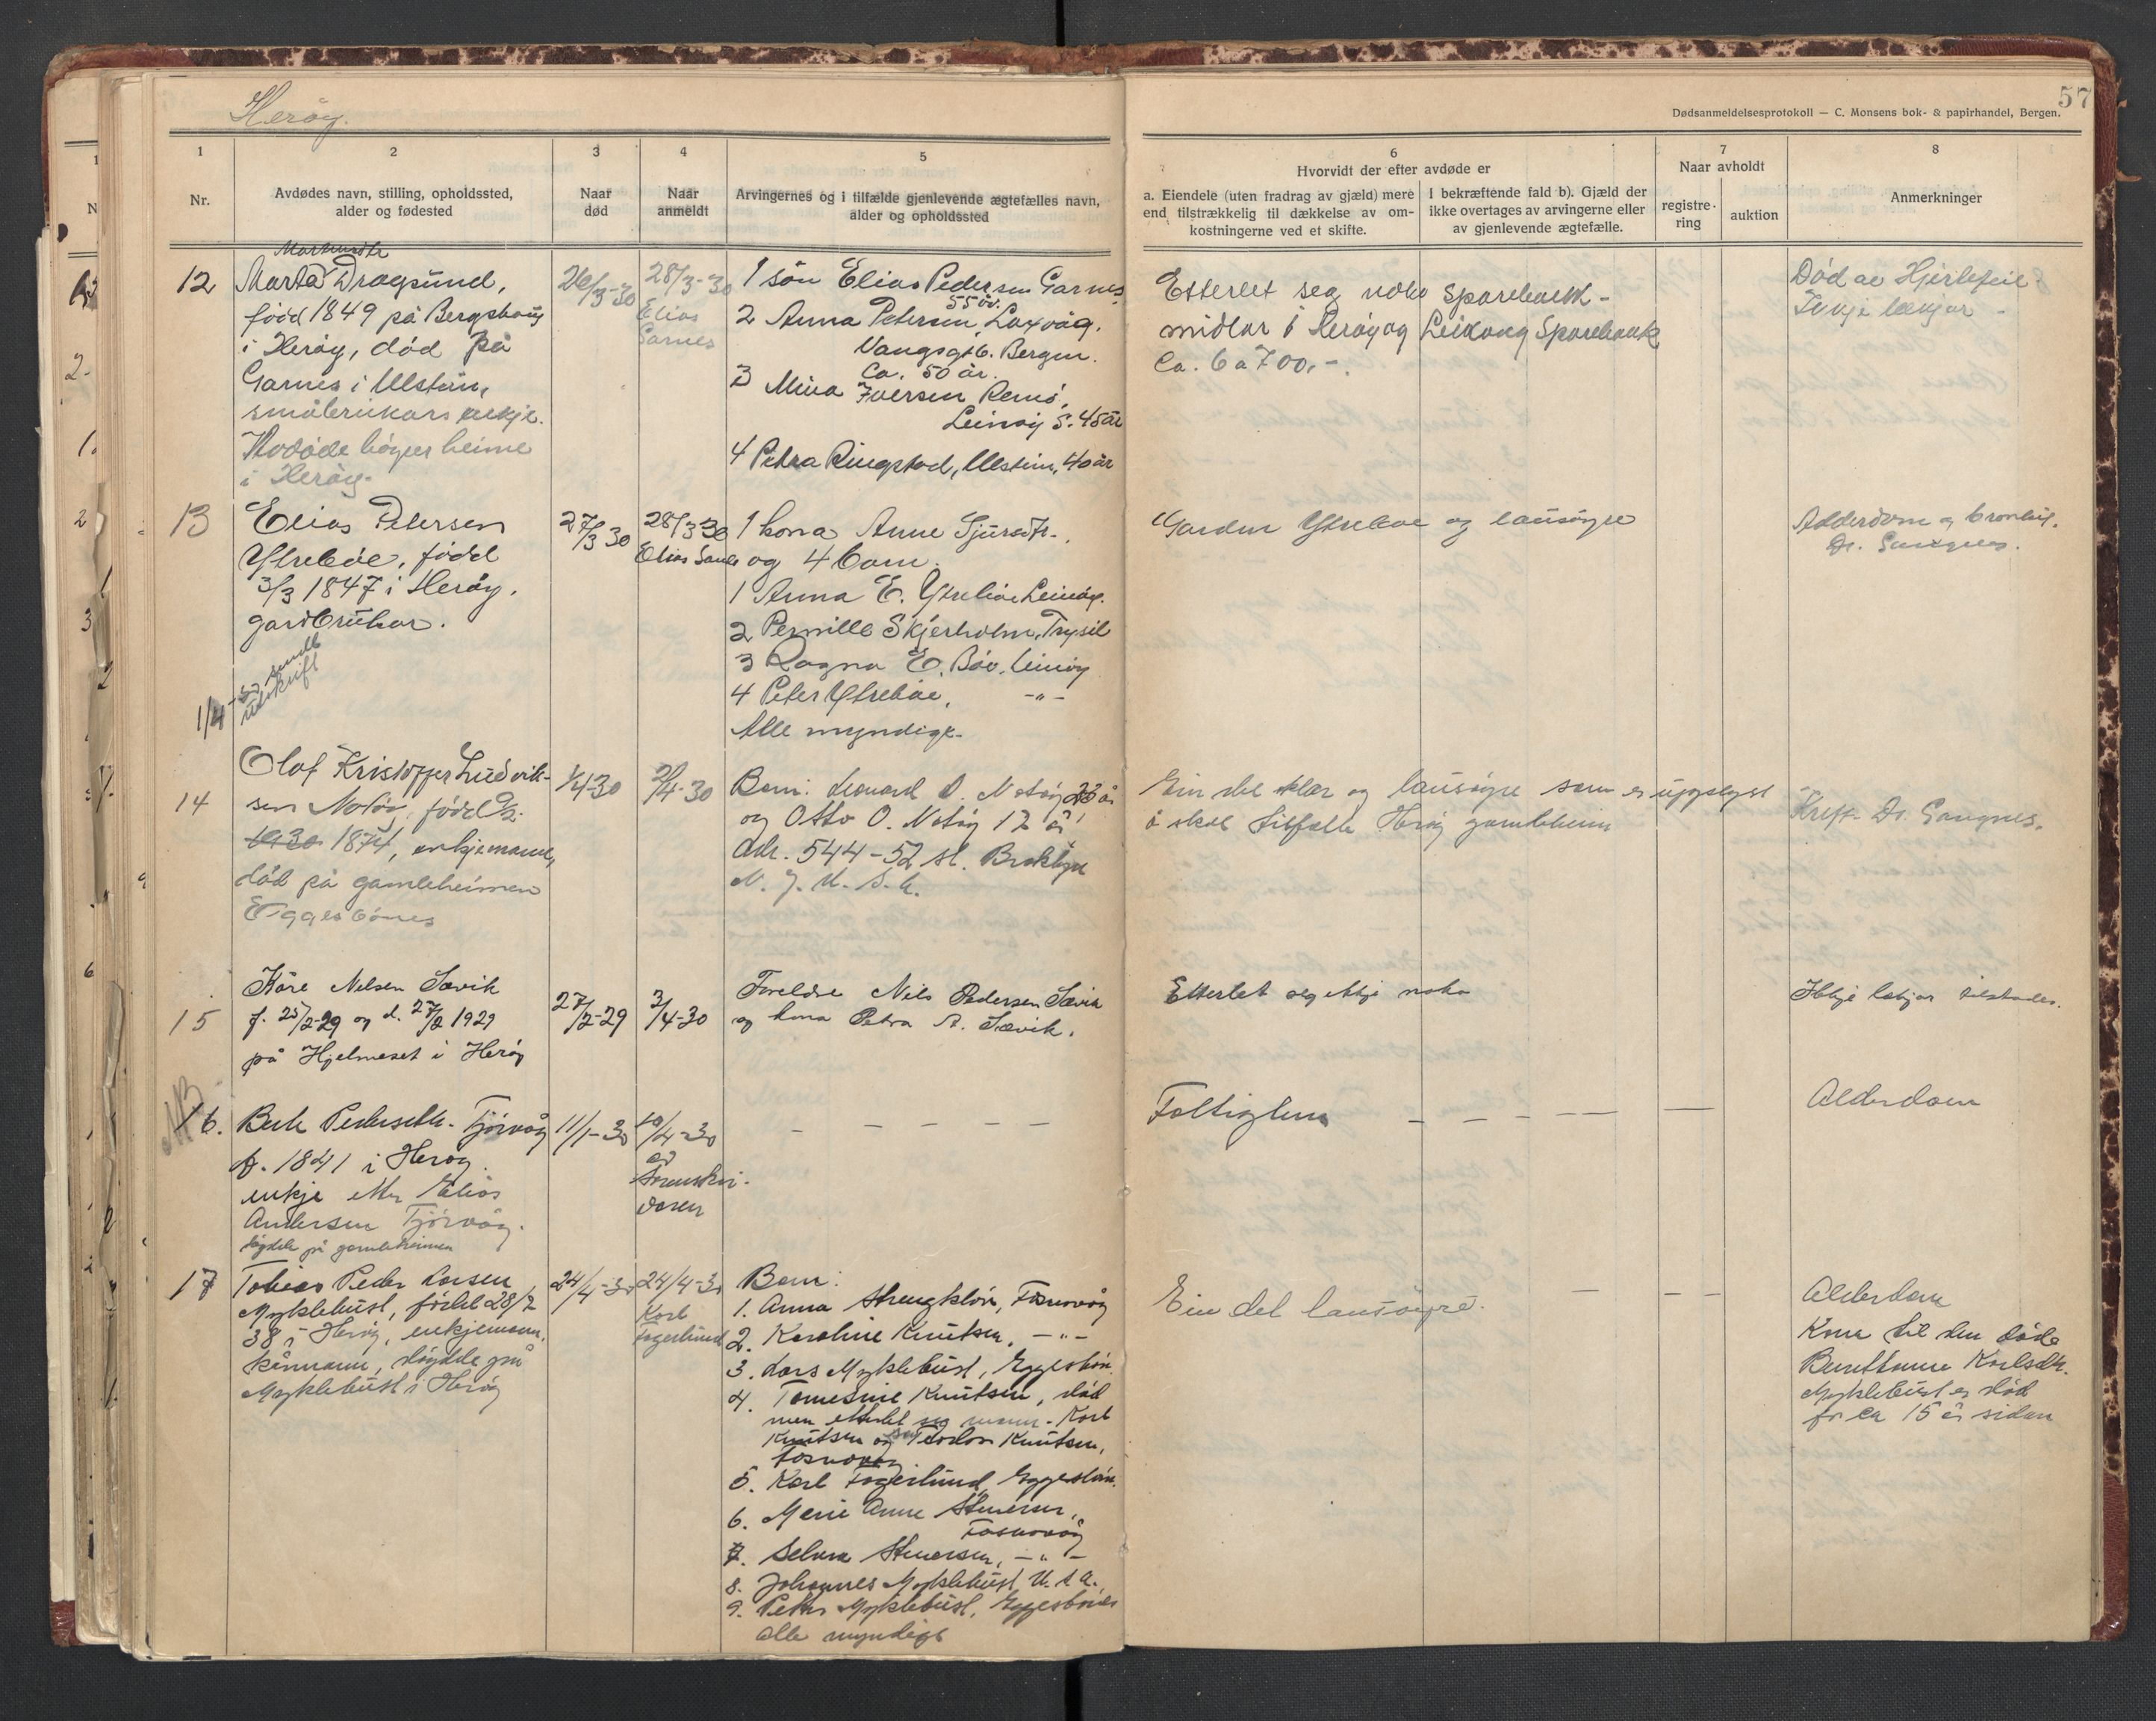 Herøy.
57
Dødsanmeldelsesprotokoll — C. Monsens bok- & papirhandel, Bergen.
1
Nr.
2
Avdødes navn, stilling, opholdssted,
alder og fødested
3
Naar
død
4
Naar
anmeldt
5
Arvingernes og i tilfælde gjenlevende ægtefælles navn,
alder og opholdssted
6
Hvorvidt der efter avdøde er
a. Eiendele (uten fradrag av gjæld) mere
end tilstrækkelig til dækkelse av om-
kostningerne ved et skifte.
I bekræftende fald b). Gjæld der
ikke overtages av arvingerne eller
av gjenlevende ægtefælle.
7
Naar avholdt
registre-
ring
auktion
8
Anmerkninger
12
Marta Dragsund,
född 1849 på Bergshaug
i Herøy, død på
Garnes i Ulstein,
småbrukars enkje.
Avdøde høyrer heime
i Herøy.
26/3-30
28/3-30
Elias
Garnes
1 sön Elias Pedersen Garnes
55 år.
2 Anna Petersen, Laxvåg.
Vangsgt 6. Bergen.
Ca. 50 år.
3 Mina Iversen Remö,
Leinöy S. 45 år
4 Petra Ringstad, Ulstein, 40 år
Etterlet seg noko Sparebank-
midlar i Herøy og Leikong Sparebank
Ca. 6 a 700,-.
Död av Hjertefeil.
Ikkje lækjar -
13
Elias Petersen
Ytreböe, född
3/3 1847 i Heröy.
gardbrukar.
1/4-30 sendt
utskrift
27/3 30
28/3 30
Elias
1 kona Anne Sjursdtr.
og 4 born.
1 Anna E. Ytreböe Leinöy.
2 Pernille Skjerholm, Trysil
3 Ragna E. Böe, Leinöy
4 Peter Ytreböe, -"-
Alle myndige.
Garden Ytreböe og lausöyre
Alderdom og bronkit.
Dr.
14
Olaf Kristoffer Ludvik-
sen Notöy, född
1874, enkjemann,
död på gamleheimen
Eggesbönes
1/4-30
2/4-30
Born: Leonard O. Notöy 23 år
og Otto O. Notöy 17 år
Adr. 544-52 st. Broklyn
N. J. U. S. A.
Ein del klær og lausöyre som er upplyst
å skal tilfalle Heröy gamleheim
Kreft. Dr. Gangnes.
15
Kåre Nelsen Sævik
f. 25/2-29 og d. 27/2 1929
på Hjelmeset i Heröy
27/2-29
3/4-30
Foreldre Nils Pedersen Sævik
og kona Petra A. Sævik.
Etterlet seg ikkje noko
Ikkje lækjar tilstades.
NB
16.
Berte Pedersdtr. Tjörvåg
f. 1841 i Heröy.
enkje etter Elias
Andersen Tjörvåg.
dögde på gamleheimen
11/1-30
10/4-30
av
Sorenskri-
varen
- - - - -
Fattiglem - - - - - -
Alderdom
17
Tobias Peder Larsen
Myklebust, född 28/2
38 i Heröy, enkjemann,
kårmann, dögde på
Myklebust i Heröy
24/4-30
24/4-30
Karl
Fagerlund
Born:
1. Anna Strengklöv, Fosnavåg
2. Karoline Knutsen, -"-
3. Lars Myklebust, Eggesbön.
4. Tomesine Knutsen, död
men etterlet seg mann - Karl
Knutsen og sön Teodor Knutsen,
Fosnavåg
5. Karl Fagerlund, Eggesbön.
6. Marie Anne Stuersen,
Fosnavåg
7. Selma Stuersen, -"-
8. Johannes Myklebust, U.S.A.
9. Petter Myklebust, Eggesbönes
alle myndige
Ein del lausöyre. - - -
Alderdom
Kona til den döde
Karlsdtr.
Myklebust er död
for ca 15 år sidan